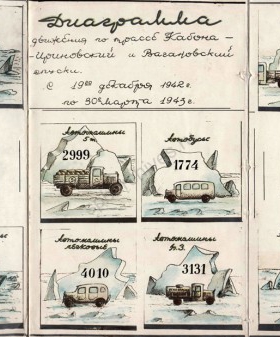 Диаграмма
движения по трассе Кабона -
- Ириновский и Вагановский
спуски.
С 19го декабря 1942г.
по 30е марта 1943г.
Автомашины
5 т.
2999
Автобусы
1774
Автомашины
легковые
4010
Автомашины
3131